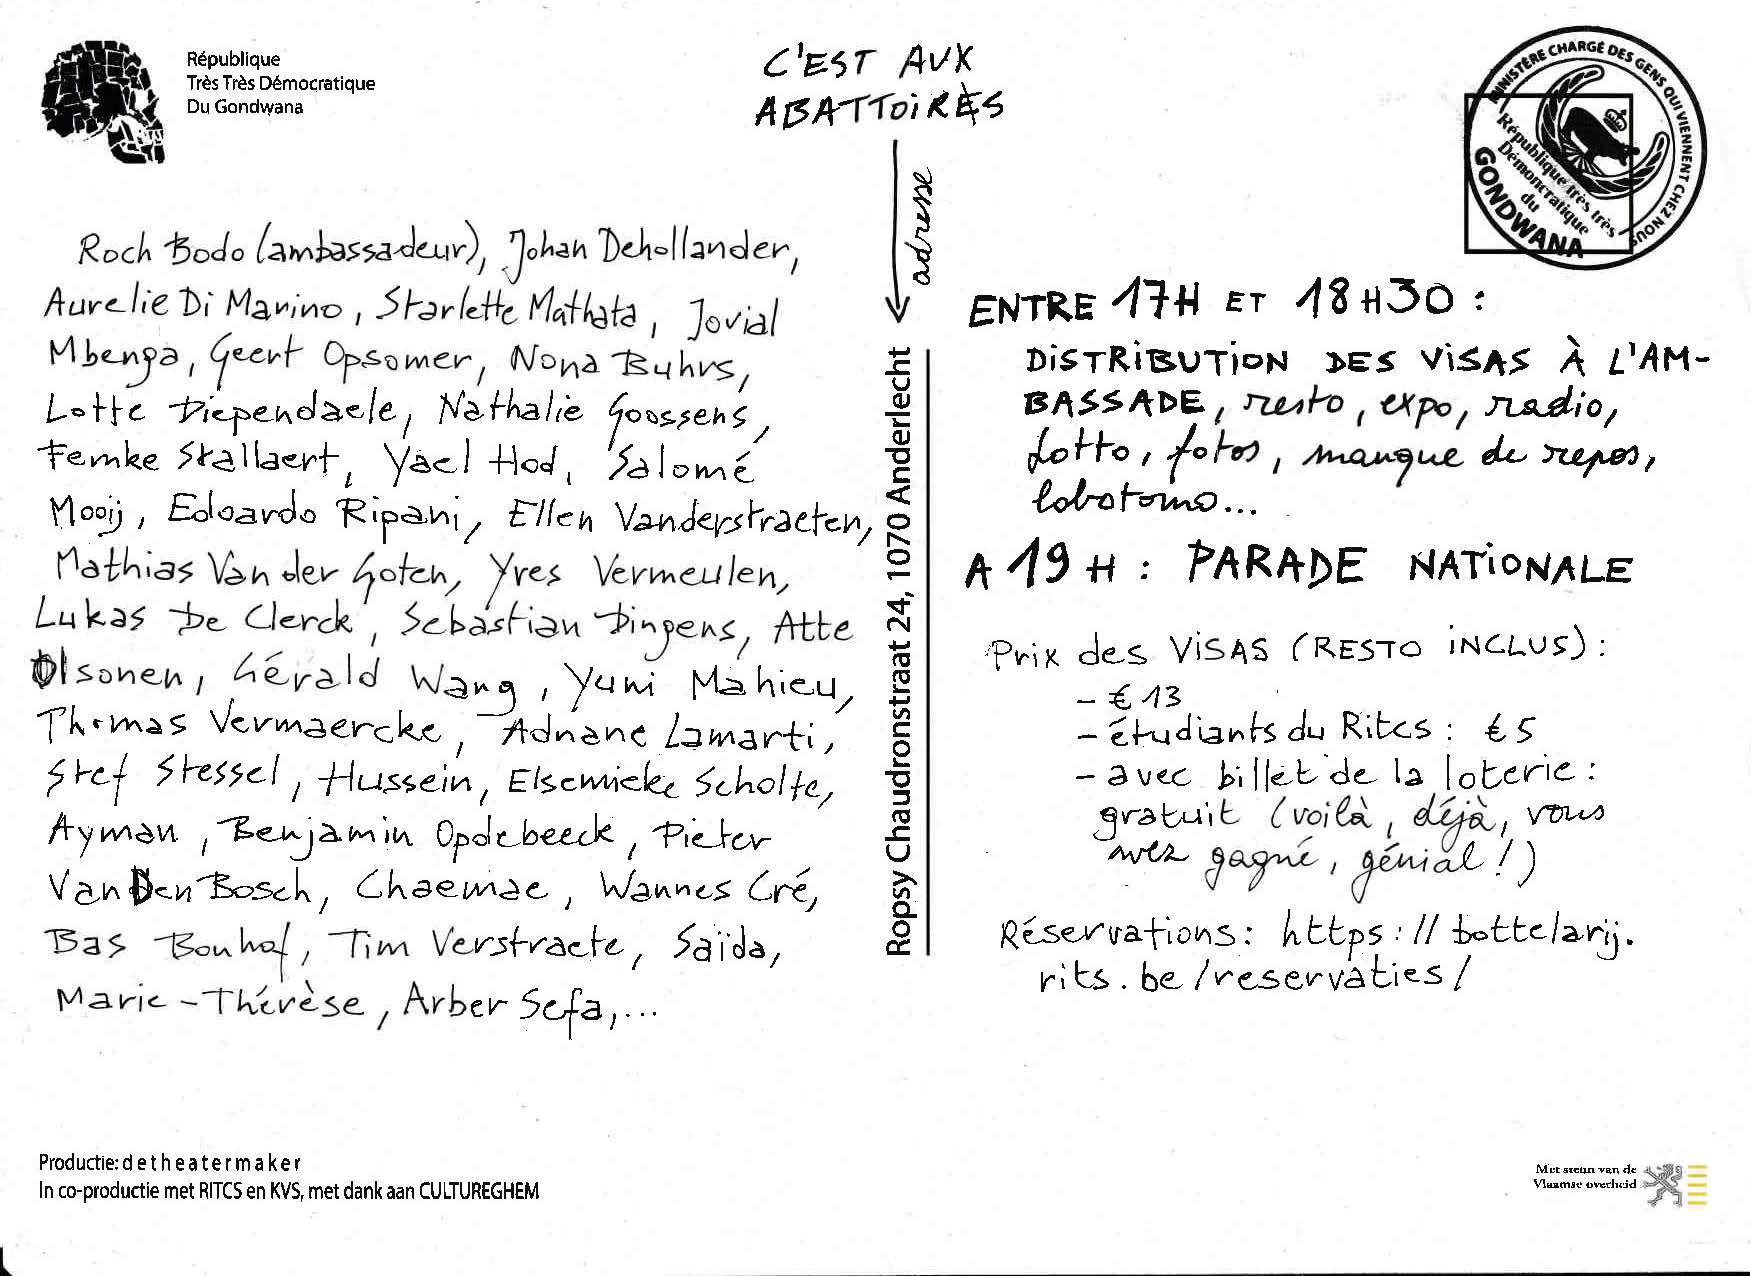 République
Très Très Démocratique
Du Gondwana
C'EST AUX
ABATTOIRÈS
adresse
Ropsy Chaudronstraat 24, 1070 Anderlecht
MINISTÈRE CHARGÉ DES GENS QUI VIENNENT CHEZ NOUS
République très très
Démoncratique
du
GONDWANA
Roch Bodo (ambassadeur), Johan Dehollander,
Aurelie Di Marino, Starlette Mathata, Jovial
Mbenga, Geert Opsomer, Nona Buhrs,
Lotte Diependaele, Nathalie Goossens,
Femke Stallaert, Yael Hod, Salomé
Mooij, Edoardo Ripani, Ellen Vanderstraeten,
Mathias Van der Goten, Yves Vermeulen,
Lukas De Clerck, Sebastian Dingens, Atte
Olsonen, Gérald Wang, Yuni Mahieu,
Thomas Vermaercke, Adnane Lamarti,
Stef Stessel, Hussein, Elsemieke Scholte,
Ayman, Benjamin Opdebeeck, Pieter
Van Den Bosch, Chaemae, Wannes Cré,
Bas Bonhof, Tim Verstraete, Saïda,
Marie-Thérèse, Arber Sefa,...
ENTRE 17H ET 18H30 :
DISTRIBUTION DES VISAS À L'AM-
BASSADE, resto, expo, radio,
Lotto, fotos, manque de repos,
lobotomo...
A 19H : PARADE NATIONALE
Prix des VISAS (RESTO INCLUS) :
- € 13
- étudiants du Ritcs : € 5
- avec billet de la loterie :
gratuit (voilà, déjà, vous
avez gagné, génial !)
Réservations : https://bottelarij.
rits.be/reservaties/
Productie: detheatermaker
In co-productie met RITCS en KVS, met dank aan CULTUREGHEM
Met steun van de
Vlaamse overheid